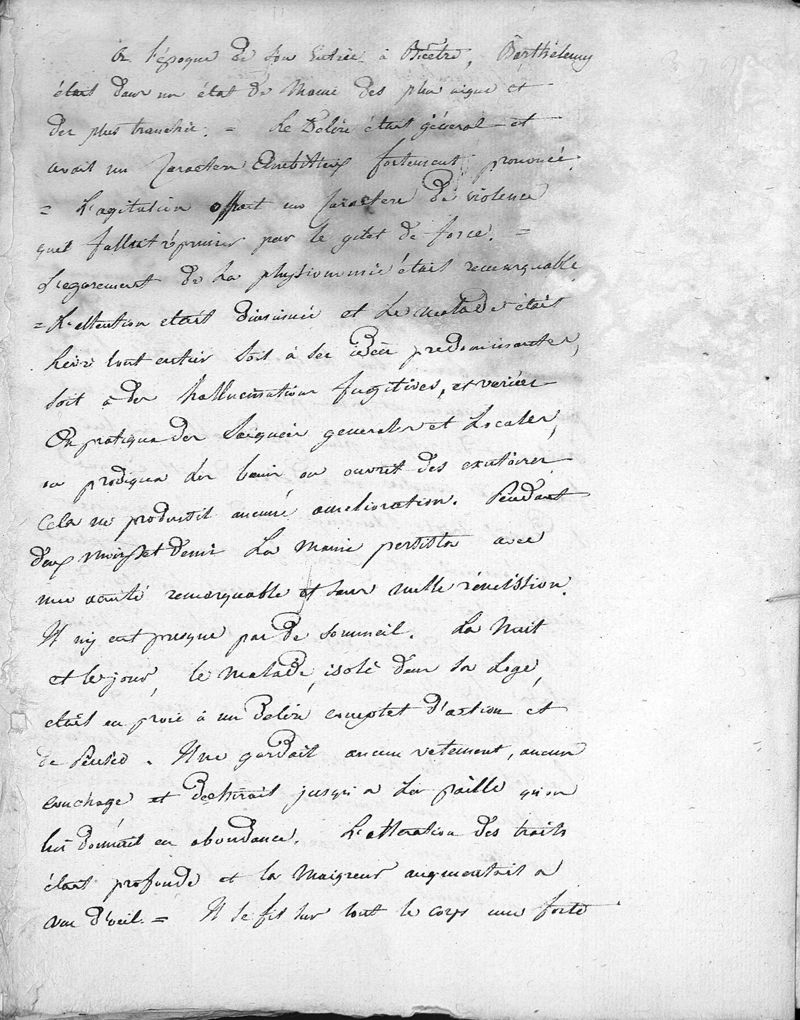 a l'époque de son entrée à Bicêtre, Barthélemy
était dans un état de Manie des plus aigue et
des plus tranchée. = Le Délire était général et
avait un Caractere Ambitieux fortement prononcé.
= L'agitation offrait un Caractere de violence
quil fallait réprimer par le gilet de force. =
L'egarement de La physionomie était remarquable
= L'attention etait diminuée et Le malade était
livré tout entier soit à ses idées predominantes,
soit à des hallucinations fugitives, et variées
On pratiqua des Saignées generales et Locales,
on prodigua des bains on ouvrit des exutoires
Cela ne produisit aucune amelioration. Pendant
deux mois et demi La manie persista avec
une acuité remarquable et sans nulle rémission.
Il n'y eut presque pas de sommeil. La Nuit
et le jour, le malade, isolé dans sa Loge,
etait en proie à un Delire complet d'action et
de Pensée. Il ne gardait aucun vetement, aucun
couchage et Dechirait jusqu'a La paille qu'on
lui donnait en abondance. L'alteration des traits
était profonde et la Maigreur augmentait a
vue d'oeil. = Il se fit sur tout le corps une forte